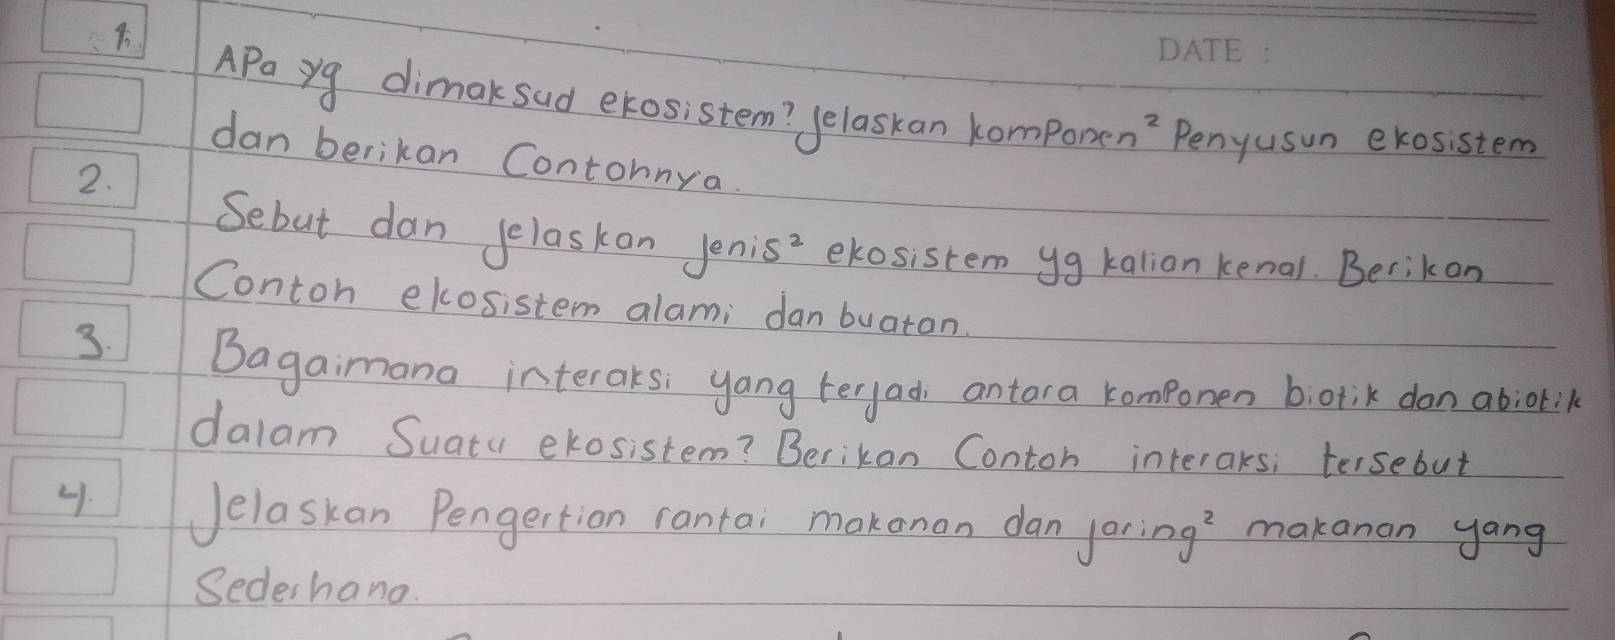 DATE :
1. APa yg dimaksud ekosistem? Jelaskan komPonen² Penyusun ekosistem
dan berikan Contohnya.
2. Sebut dan jelaskan jenis² ekosistem yg kalian kenal. Berikan
Contoh ekosistem alami dan buatan.
3. Bagaimana interaksi yang terjadi antara komPonen biotik dan abiotik
dalam Suatu ekosistem? Berikan Contoh interaksi tersebut
4. Jelaskan Pengertian rantai makanan dan jaring² makanan yang
Sederhana.